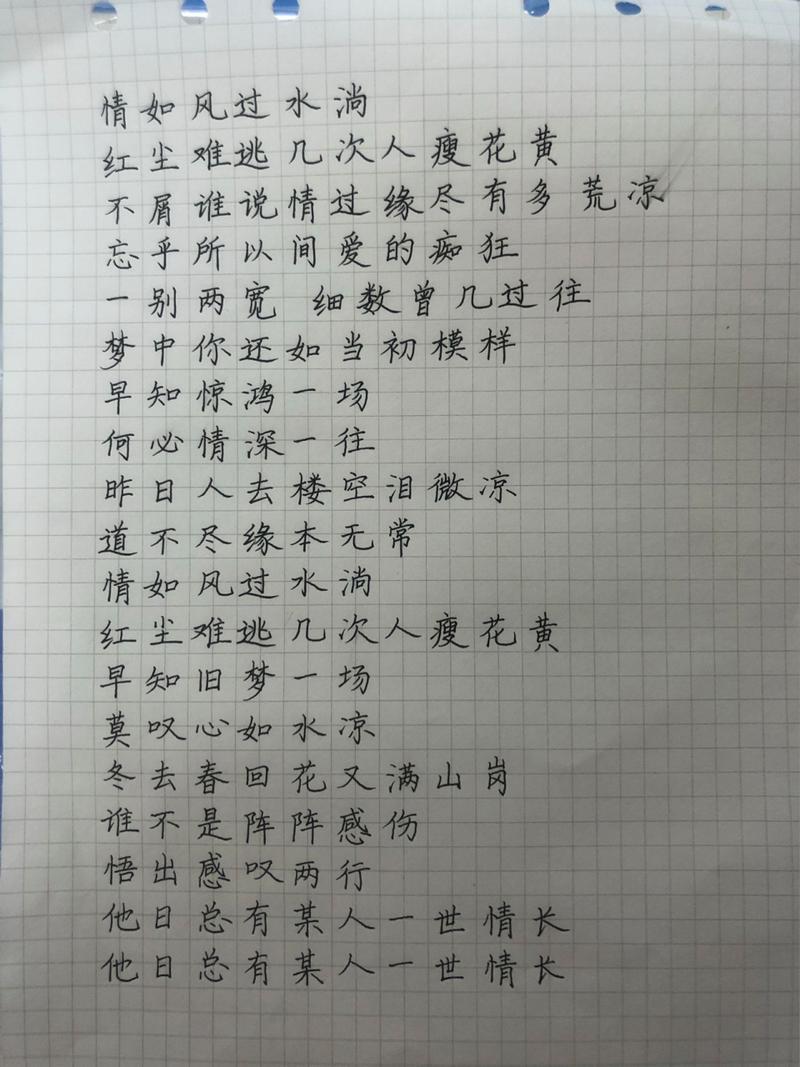 情如风过水淌
红尘难逃几次人瘦花黄
不屑谁说情过缘尽有多荒凉
忘乎所以间爱的痴狂
一别两宽 细数曾几过往
梦中你还如当初模样
早知惊鸿一场
何必情深一往
昨日人去楼空泪微凉
道不尽缘本无常
情如风过水淌
红尘难逃几次人瘦花黄
早知旧梦一场
莫叹心如水凉
冬去春回花又满山岗
谁不是阵阵感伤
悟出感叹两行
他日总有某人一世情长
他日总有某人一世情长